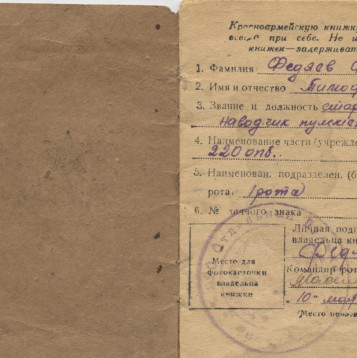 Красноармейскую книжк
при себе. Не и
книжек—задерживат
1. Фамилия Федяев
2. Имя и отчество Тимоф
3. Звание и должность стар
наводчик пулеме
4. Наименование части (учрежде
220 опб..
5. Наименован. подразделен. (б
рота. (рота)
6. № личного знака
Личная под
владельца кн
Место для
фотокарточки
владельца
книжки
Командир ро
10-мар
Место печа